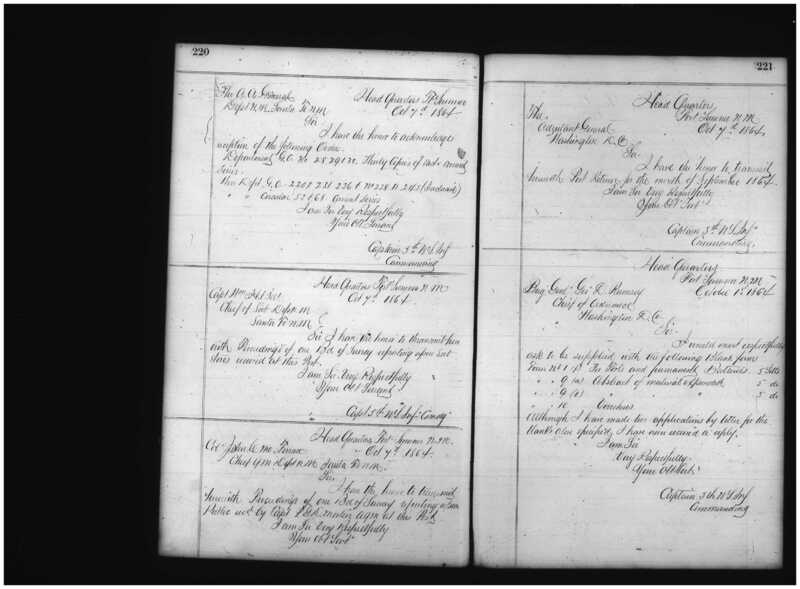 220
Head Quarters Ft Sumner
Oct 7th 1864
The A. A. General
Dept N.M. Santa Fe N.M.
Sir
I have the honor to acknowledge
reception of the following Orders
Department G.O. No 28 29
Series
Dept G.O.
Circular 52 & 68 Current Series
I am Sir Very Respectfully
Your Obt Servant
Captain 5th US Inf
Commanding
Head Quarters Fort Sumner N.M.
Oct 7th 1864
Capt Wm
Chief of Sub Dept N.M
Santa Fe N.M
Sir I have the honor to transmit here
with Proceedings of one Bd of Survey reporting upon Sub
Stores received at this Post.
I am Sir Very Respectfully
Your Obt Servant
Capt 5th US Inf Comdg
Head Quarters Fort Sumner N.M.
Oct 7th 1864
Col John C. Mc Ferran
Chief Q.M. Dept N.M. Santa Fe N.M.
Sir
I have the honor to transmit
herewith Proceedings of one Bd of Survey reporting upon
Public by Capt at this Post
I am Sir Very Respectfully
Your Obt Servt
221
Head Quarters
Fort Sumner N.M
Oct 7th 1864
The
Adjutant General
Washington D.C.
Sir
I have the honor to transmit
herewith Post Return for the month of September 1864
I am Sir Very Respectfully
Your Obt Servt
Captain 5th US Inf
Commanding
Head Quarters
Fort Sumner N.M
October 1st 1864
Brig Genl Geo D. Ramsey
Chief of Ordnance
Washington D.C.
Sir
I would most respectfully
ask to be supplied with the following Blank forms
Form No 1 (b) for tools and permanent 5 Setts
" " 9 (a) Abstract of material expended 5 do
" " 9 (b) " " " 5 do
" 10 Vouchers
Although I have made two applications by letter for the
blanks above specified, I have never received a reply.
I am Sir
Very Respectfully
Your Obt Servt
Captain 5th US Inf
Commanding